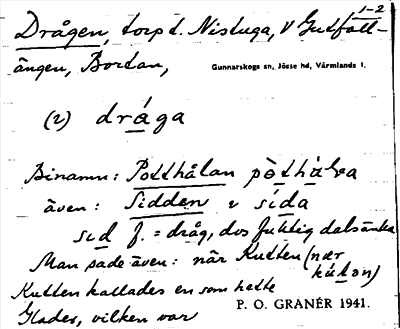 1-2
Drågen, torp t. Nistuga, V Gutfall-
ängen, Bortan,
Gunnarskogs sn, Jösse hd, Värmlands l.
(2) drága
Binamn: Potthålan pòthàla
även: Sidden 2 sída
sid f. = dråg, dvs fuktig dalsänka
Man sade även: när Kutten (nær
Kutten kallades en som hette
Glader, vilken var
P. O. GRANÉR 1941.